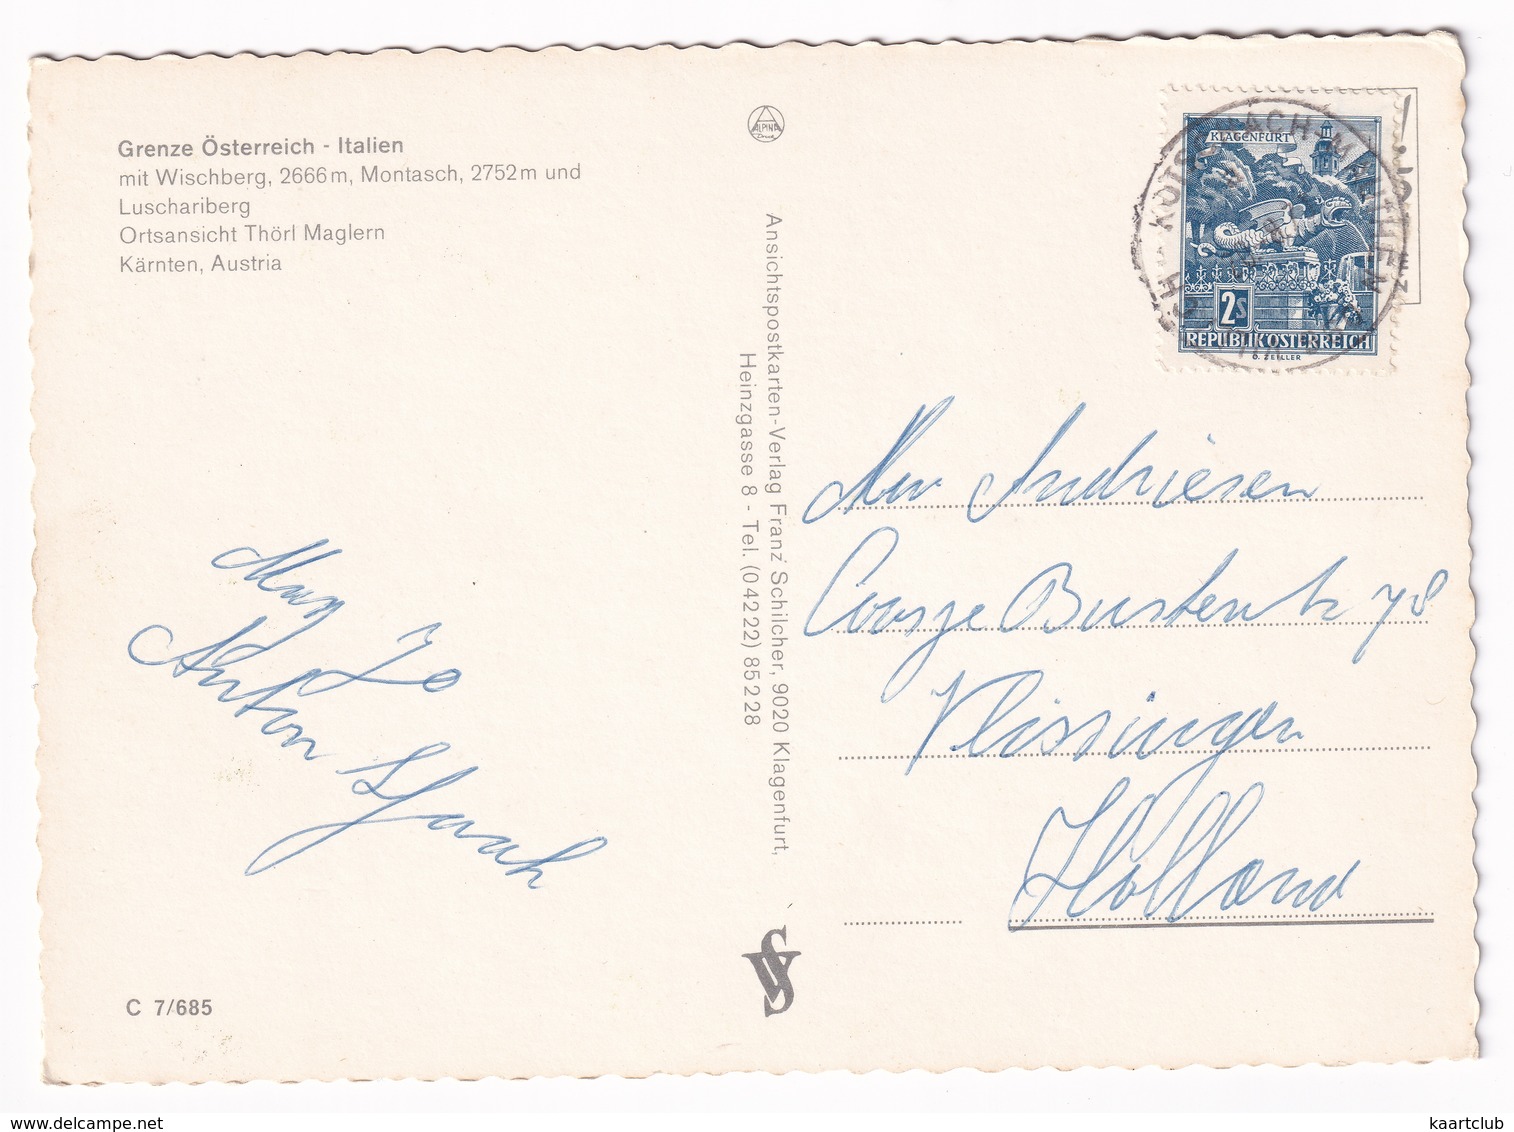 Grenze Österreich - Italien
mit Wischberg, 2666 m, Montasch, 2752 m und
Luschariberg
Ortsansicht Thörl Maglern
Kärnten, Austria
ALPINA
Druck
Ansichtspostkarten-Verlag Franz Schilcher, 9020 Klagenfurt,
Heinzgasse 8 - Tel. (0 42 22) 85 2 28
KLAGENFURT
2S
REPUBLIK ÖSTERREICH
O. ZEILLER
KÖTSCHACH-MAUTHEN
Andriesen
Vlissingen
Holland
Jo
Anton
C 7/685
delcampe.net
kaartclub